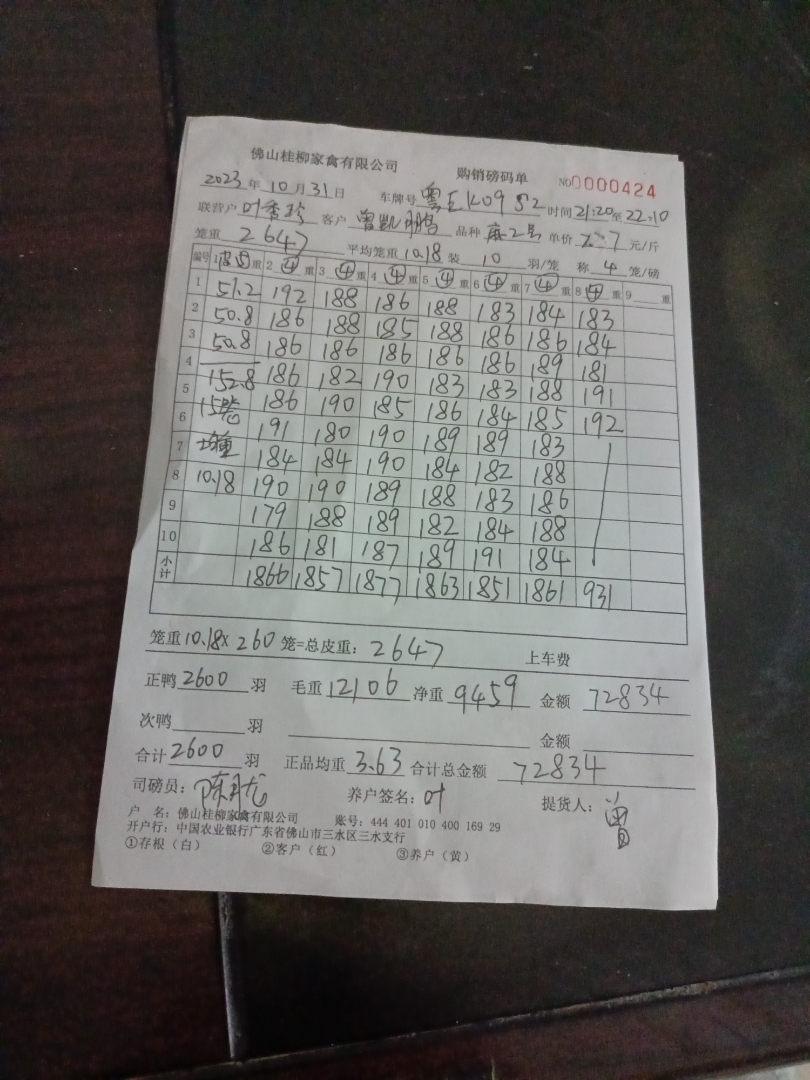 佛山桂柳家禽有限公司 购销磅码单 NO0000424
2023年10月31日 车牌号 粤E K0952 时间21:20至22:10
联营户 叶秀珍 客户 曾凯鹏 品种 麻2号 单价 7.7 元/斤
笼重 2647 平均笼重 10.18 装 10 羽/笼 称 4 笼/磅
编号 1 重 2 ④ 重 3 ④ 重 4 ④ 重 5 ④ 重 6 ④ 重 7 ④ 重 8 ④ 重 9 重
1 51.2 192 188 186 188 183 184 183
2 50.8 186 188 185 188 186 186 184
3 50.8 186 186 186 186 186 189 181
4 152.8 186 182 190 183 183 188 191
5 15笼 186 190 185 186 184 185 192
6 191 180 190 189 189 183
7 均重 184 184 190 184 182 188
8 10.18 190 190 189 188 183 186
9 179 188 189 182 184 188
10 186 181 187 189 191 184
小计 1866 1857 1877 1863 1851 1861 931
笼重10.18×260笼=总皮重：2647 上车费
正鸭2600羽 毛重12106 净重9459 金额 72834
次鸭 羽 金额
合计2600羽 正品均重3.63 合计总金额 72834
司磅员： 养户签名：叶 提货人：曾
户 名：佛山桂柳家禽有限公司 账号：444 401 010 400 169 29
开户行：中国农业银行广东省佛山市三水区三水支行
①存根（白） ②客户（红） ③养户（黄）